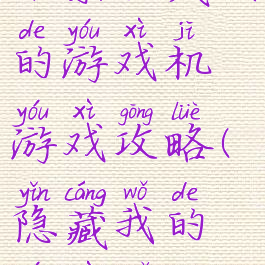 de yóu xì jī
的游戏机
yóu xì gōng lüè
游戏攻略(
yǐn cáng wǒ de
隐藏我的